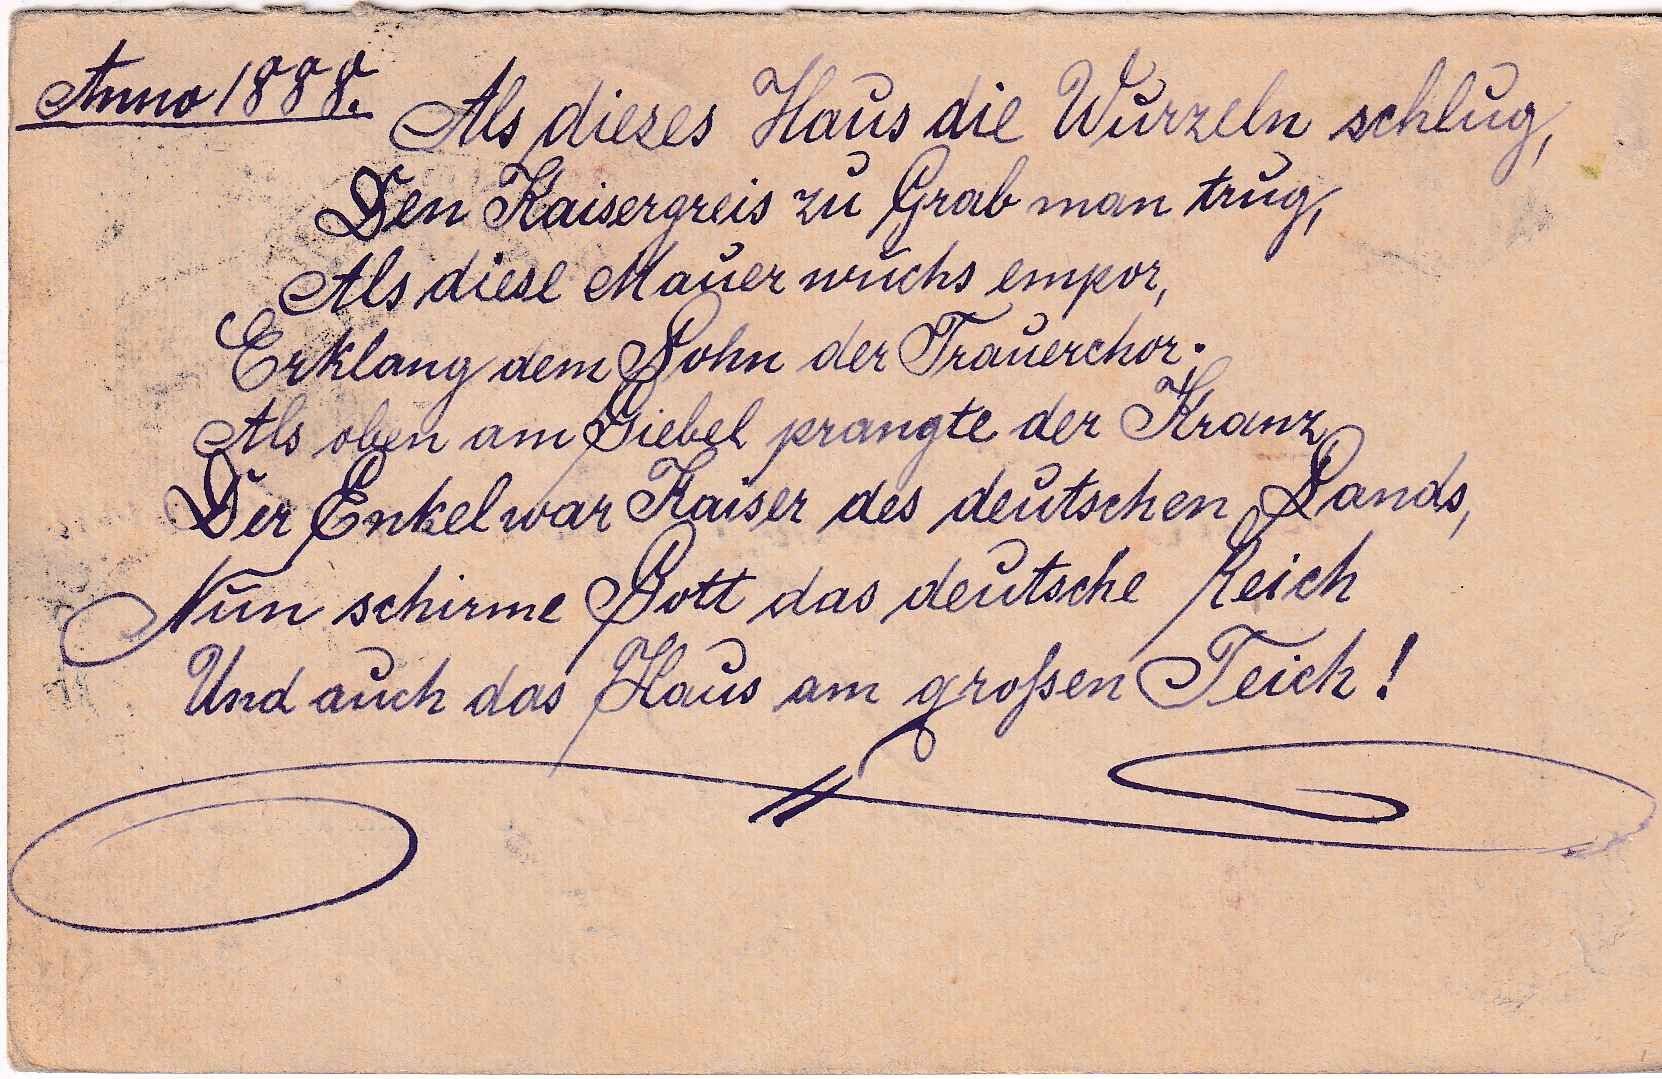 Anno 1888.
Als dieses Haus die Wurzeln schlug,
Den Kaisergreis zu Grab man trug,
Als diese Mauer wuchs empor,
Erklang dem Sohn der Trauerchor;
Als oben am Giebel prangte der Kranz
Der Enkel war Kaiser des deutschen Lands,
Nun schirme Gott das deutsche Reich
Und auch das Haus am großen Teich!